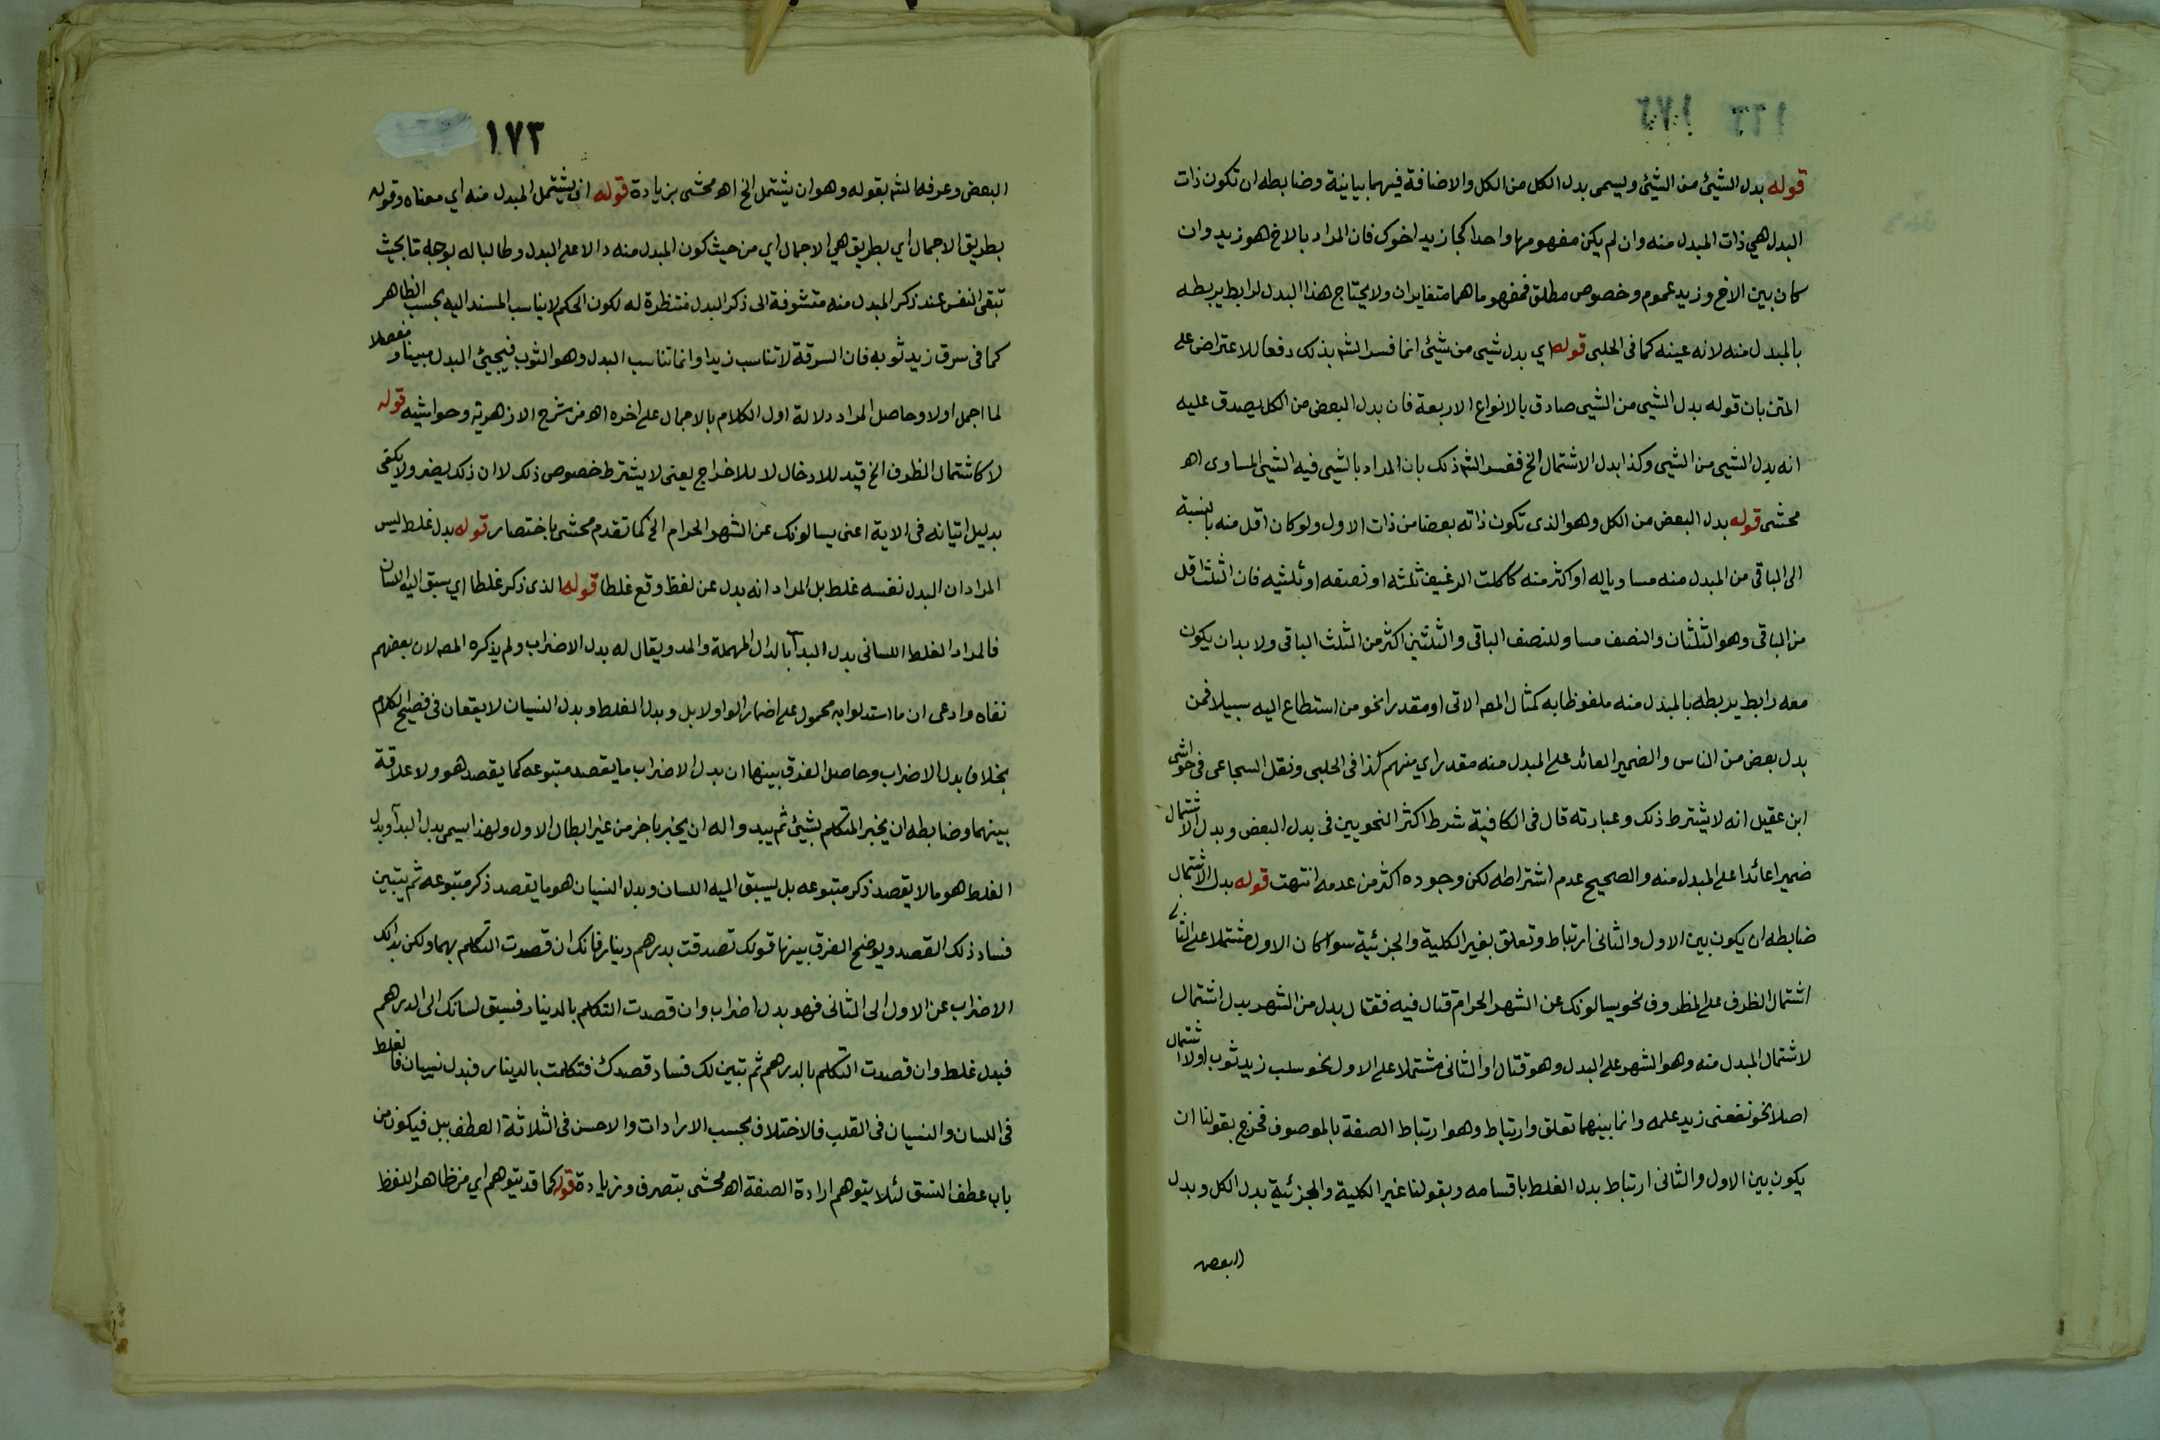 قوله بدل الشيئ من الشيئ ويسمى بدل الكل من الكل والاضافة فيهما بيانية وضابطه ان تكون ذات
البدل هي ذات المبدل منه وان لم يكن مفهومها واحدا كجا زيد اخوك فان المراد بالاخ هو زيد وان
كان بين الاخ وزيد عموم وخصوص مطلق فمفهوماهما متغايران ولا يحتاج هذا البدل لرابط يربطه
بالمبدل منه لانه عينه كما فى الحلبى قوله اي بدل شيى من شيئ انما فسر الشه بذلك دفعا للاعتراض على
المتن بان قوله بدل الشيى من الشيى صادق بالانواع الاربعة فان بدل البعض من الكل يصدق عليه
انه بدل الشيى من الشيى وكذا بدل الاشتمال الخ ففسر الشه ذلك بان المراد بالشيى فيه الشيى المساوى اهـ
محشى قوله بدل البعض من الكل وهو الذى تكون ذاته بعضا من ذات الاول ولو كان اقل منه بالنسبة
الى الباقى من المبدل منه مساويا له او اكثر منه كاكلت الرغيف ثلثه او نصفه او ثلثيه فان الثلث اقل
من الباقى وهو الثلثان والنصف مساو للنصف الباقى والثلثين اكثر من الثلث الباقى ولا بد ان يكون
معه رابط يربطه بالمبدل منه ملفوظا به كمثال المصه الاتى او مقدرا نحو من استطاع اليه سبيلا فمن
بدل بعض من الناس والضمير العائد على المبدل منه مقدر اي منهم كذا فى الحلبى ونقل السجاعى فى حواشى
ابن عقيل انه لا يشترط ذلك وعبارته قال فى الكافية شرط اكثر النحويين فى بدل البعض وبدل الاشتمال
ضميرا عائدا على المبدل منه والصحيح عدم اشتراطه لكن وجوده اكثر من عدمه انتهت قوله بدل الاشتمال
ضابطه ان يكون بين الاول والثانى ارتباط وتعلق بغير الكلية والجزئية سوا كان الاول مشتملا على الثانى
اشتمال الظرف على المظروف نحو يسالونك عن الشهر الحرام قتال فيه فقتال بدل من الشهر بدل اشتمال
لاشتمال المبدل منه وهو الشهر على البدل وهو قتال او الثانى مشتملا على الاول نحو سلب زيد ثوب اولا اشتمال
اصلا نحو نفعنى زيد علمه وانما بينهما تعلق وارتباط وهو ارتباط الصفة بالموصوف فخرج بقولنا ان
يكون بين الاول والثانى ارتباط بدل الغلط باقسامه وبقولنا غير الكلية والجزئية بدل الكل وبدل
البعص
١٧٣
البعض وعرفه الشه بقوله وهو ان يشتمل الخ اهـ محشى بزيادة قوله ان يشتمل المبدل منه اي معناه وقوله
بطريق الاجمال اي بطريق هي الاجمال اي من حيث كون المبدل منه دالا على البدل وطالبا له بوجه ما بحيث
تبقى النفس عند ذكر المبدل منه متشوفة الى ذكر البدل منتظرة له لكون الحكم لا يناسب المسند اليه بحسب الظاهر
كما فى سرق زيد ثوبه فان السرقة لا تناسب زيدا وانما تناسب البدل وهو الثوب فيجيئ البدل مبينا ومفصلا
لما اجمل اولا وحاصل المراد دلالة اول الكلام بالاجمال على اخره اهـ من شرح الازهرية وحواشيه قوله
لا كاشتمال الظرف الخ قيد للادخال لا للاخراج يعنى لا يشترط خصوص ذلك لا ان ذلك يضر ولا يكفى
بدليل اتيانه فى الاية اعنى يسالونك عن الشهر الحرام الخ كما تقدم محشى باختصار قوله بدل غلط ليس
المراد ان البدل نفسه غلط بل المراد انه بدل عن لفظ وقع غلطا قوله الذى ذكر غلطا اي سبق اليه اللسان
فالمراد الغلط اللسانى بدل البدآ بالدال المهملة والمد ويقال له بدل الاضراب ولم يذكره المصه لان بعضهم
نفاه وادعى ان ما استدلوا به محمول على اضمار الواو لا بل وبدل الغلط وبدل النسيان لا يقعان فى فصيح الكلام
بخلاف بدل الاضراب وحاصل الفرق بينهما ان بدل الاضراب ما يقصد متبوعه كما يقصد هو ولا علاقة
بينهما وضابطه ان يخبر المتكلم بشيئ ثم يبدو له ان يخبر باخر من غير ابطال الاول ولهذا يسمى بدل البدآ وبدل
الغلط هو ما لا يقصد ذكر متبوعه بل يسبق اليه اللسان وبدل النسيان هو ما يقصد ذكر متبوعه ثم يتبين
فساد ذلك القصد ويوضح الفرق بينها قولك تصدقت بدرهم دينار فانك ان قصدت التكلم بهما ولكن بدا لك
الاضراب عن الاول الى الثانى فهو بدل اضراب وان قصدت التكلم بالدينار فسبق لسانك الى الدرهم
فبدل غلط وان قصدت التكلم بالدرهم ثم تبين لك فساد قصدك فتكلمت بالدينار فبدل نسيان فالغلط
فى اللسان والنسيان فى القلب فالاختلاف بحسب الارادات والاحسن فى الثلاثة العطف ببل فيكون من
باب عطف النسق لئلا يتوهم ارادة الصفة اهـ محشى بتصرف وزيادة قوله كما قد يتوهم اي من ظاهر اللفظ